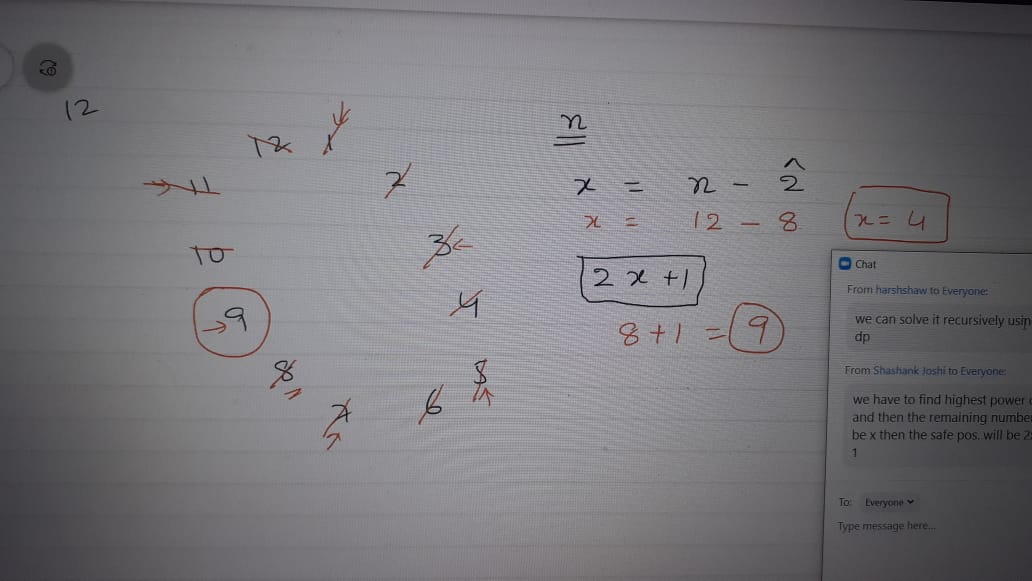 12
12 1
11 2
10 3
9 4
8 5
7 6
n
x = n - 2^
x = 12 - 8
x = 4
2x+1
8+1 = 9
Chat
From harshshaw to Everyone:
we can solve it recursively usin
dp
From Shashank Joshi to Everyone:
we have to find highest power
and then the remaining number
be x then the safe pos. will be 2
1
To: Everyone
Type message here...